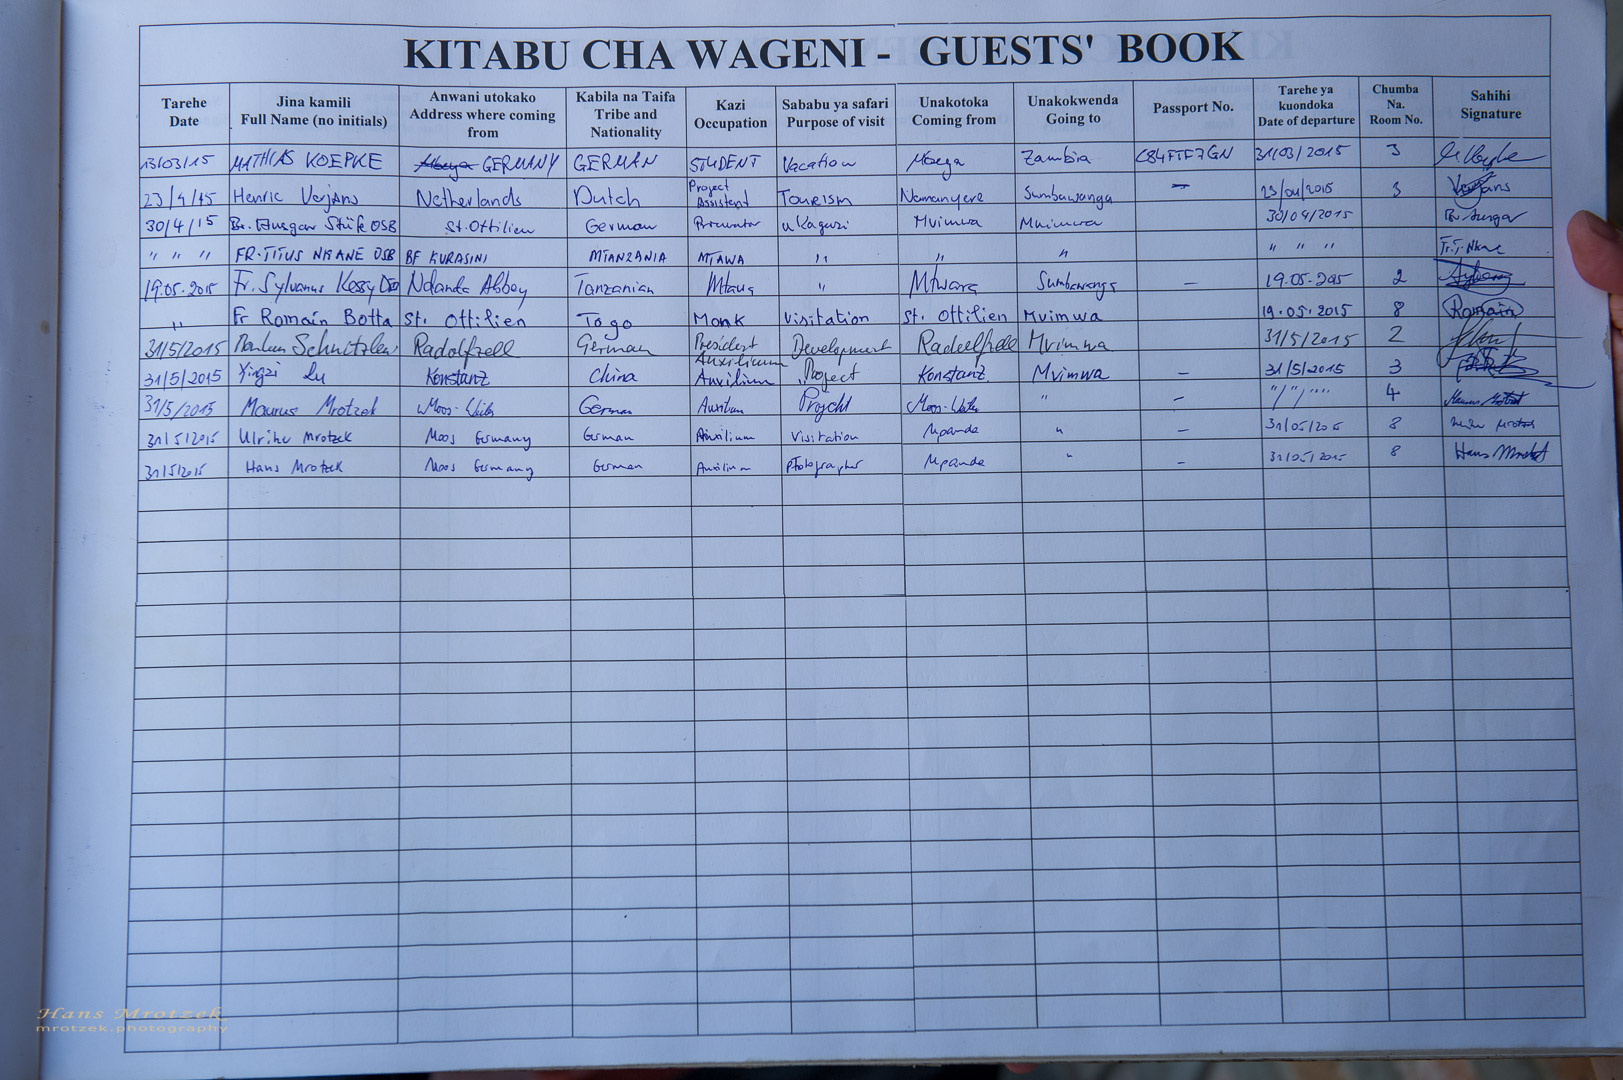 KITABU CHA WAGENI - GUESTS' BOOK
Tarehe Date
Jina kamili Full Name (no initials)
Anwani utokako Address where coming from
Kabila na Taifa Tribe and Nationality
Kazi Occupation
Sababu ya safari Purpose of visit
Unakotoka Coming from
Unakokwenda Going to
Passport No.
Tarehe ya kuondoka Date of departure
Chumba Na. Room No.
Sahihi Signature
13/03/15 MATHIAS KOEPKE GERMANY GERMAN STUDENT Vacation Mbeya Zambia 31/03/2015 3
23/4/15 Henric Verjans Netherlands Dutch Project Assistent Tourism Namanyere Sumbawanga - 3
30/4/15 Br. Ansgar Stüfe OSB St. Ottilien German Procurator Mvimwa Mvimwa 30/04/2015 Br. Ansgar
" " " FR. TITUS NKANE OSB BF KURASINI MTANZANIA MTAWA " " " " " " Fr. T. Nkane
19.05.2015 Fr. Sylvanus Kessy OSB Ndanda Abbey Tanzanian Mtawa " Mtwara Sumbawanga - 19.05.2015 2
" Fr Romain Botta St. Ottilien Togo Monk Visitation St. Ottilien Mvimwa 19.05.2015 8 Romain
31/5/2015 Schnitzler Radolfzell German President Auxilium Development Radolfzell Mvimwa 31/5/2015 2
31/5/2015 Yingzi Lu Konstanz China Auxilium " Project Konstanz Mvimwa - 31/5/2015 3
31/5/2015 Maurus Mrotzek Moos-Weiler German Auxilium Project Moos-Weiler " - " / " / " " 4 Maurus Mrotzek
31/5/2015 Ulrike Mrotzek Moos Germany German Auxilium Visitation Mpanda " - 31/05/2015 8 Ulrike Mrotzek
31/5/2015 Hans Mrotzek Moos Germany German Auxilium Photographer Mpanda " - 31/05/2015 8 Hans Mrotzek
Hans Mrotzek
mrotzek.photography